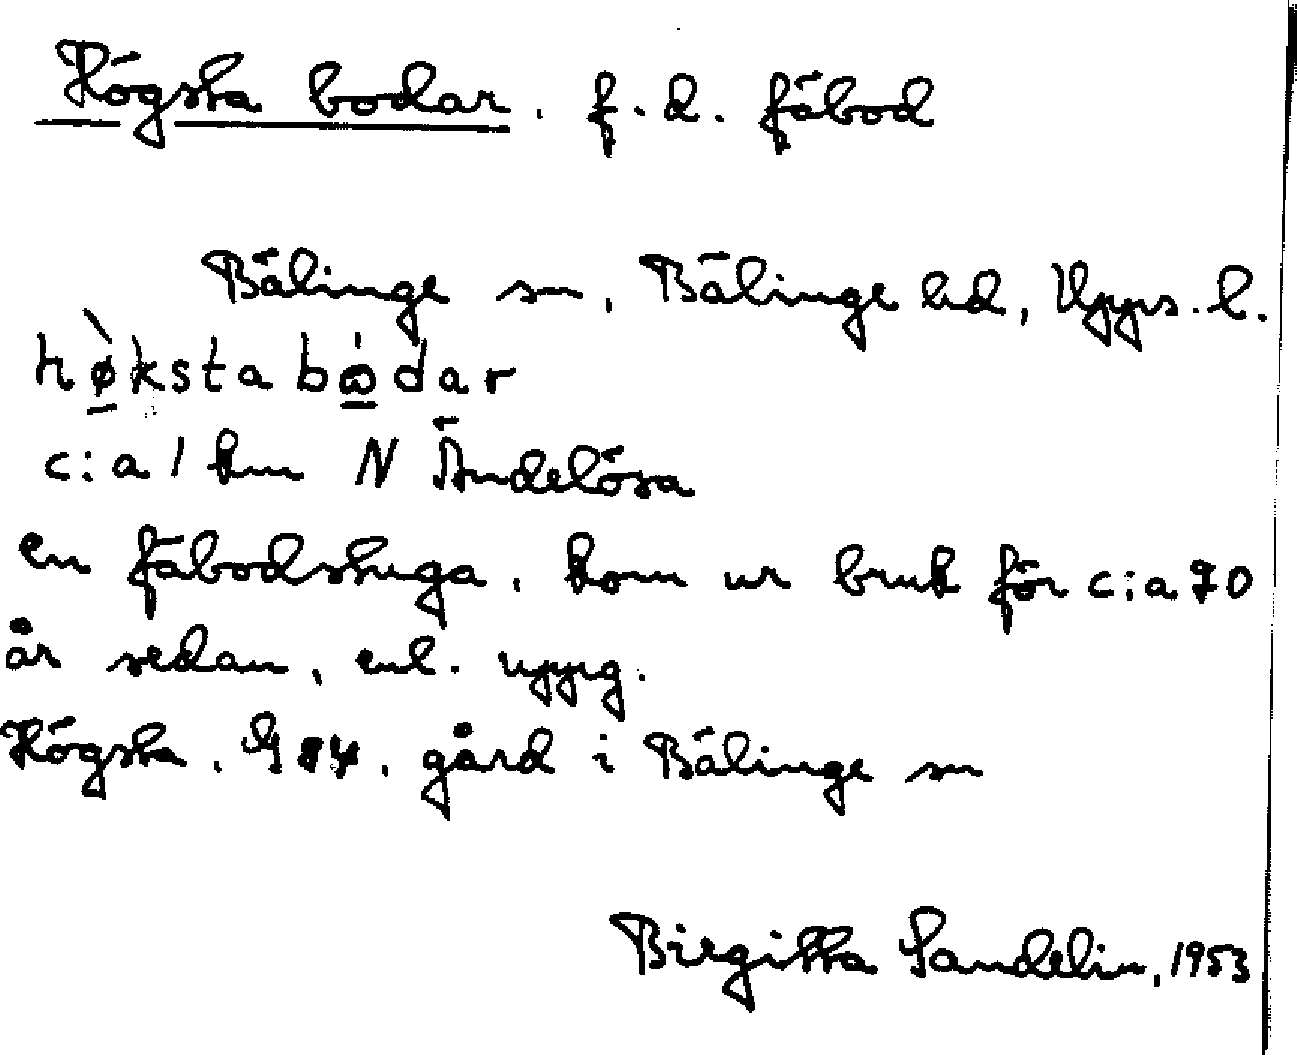 Högsta bodar, f.d. fäbod
Bälinge sn, Bälinge hd, Upps. l.
hø̀ksta bὼdar
c:a 1 km N Ändelösa
en fäbodstuga, kom ur bruk för c:a 70
år sedan, enl. uppg.
Högsta, gård i Bälinge sn
Birgitta Sandelin, 1953